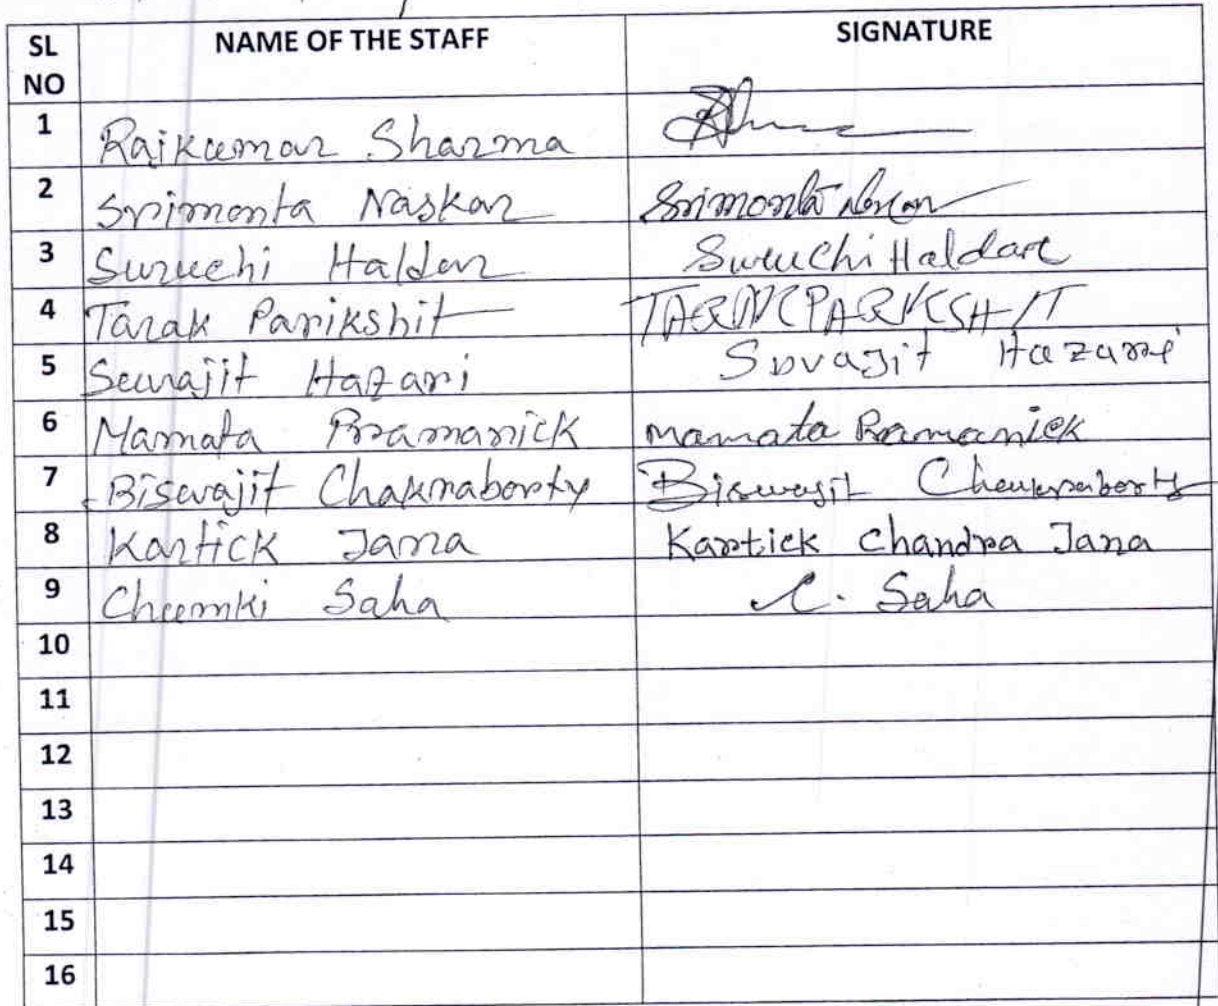 SL NO NAME OF THE STAFF SIGNATURE
1 Rajkumar Sharma
2 Srimonta Naskar Srimonta
3 Suruchi Haldar Suruchi Haldar
4 Tarak Parikshit TARAK PARKSHIT
5 Suvajit Hazari Suvajit Hazari
6 Mamata Pramanick mamata Pramanick
7 Biswajit Chakraborty Biswajit Chakraborty
8 Kartick Jana Kartick Chandra Jana
9 Chumki Saha C. Saha
10
11
12
13
14
15
16